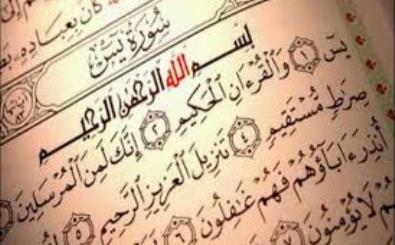 كَانَ بِعِبَادِهِۦ
سُورَةُ يسٓ
بِسْمِ اللَّهِ الرَّحْمَٰنِ الرَّحِيمِ
يسٓ ١ وَٱلْقُرْءَانِ ٱلْحَكِيمِ ٢ إِنَّكَ لَمِنَ ٱلْمُرْسَلِينَ
صِرَٰطٍ مُّسْتَقِيمٍ ٤ تَنزِيلَ ٱلْعَزِيزِ ٱلرَّحِيمِ ٥
أُنذِرَ ءَابَآؤُهُمْ فَهُمْ غَٰفِلُونَ ٦
لَا يُؤْمِنُونَ